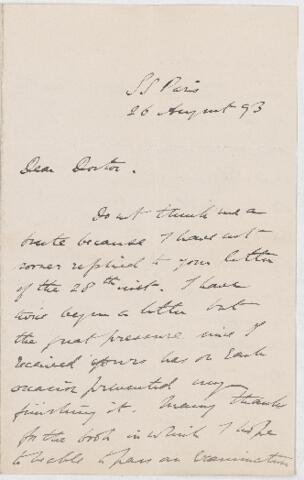 SS Paris
26 August 93
Dear Doctor.
Do not think me a
brute because I have not
sooner replied to your letter
of the 28th inst. I have
twice begun a letter but
the great pressure since I
received yours has on each
occasion prevented my
finishing it. Many thanks
for the book in which I hope
to be able to pass an examination